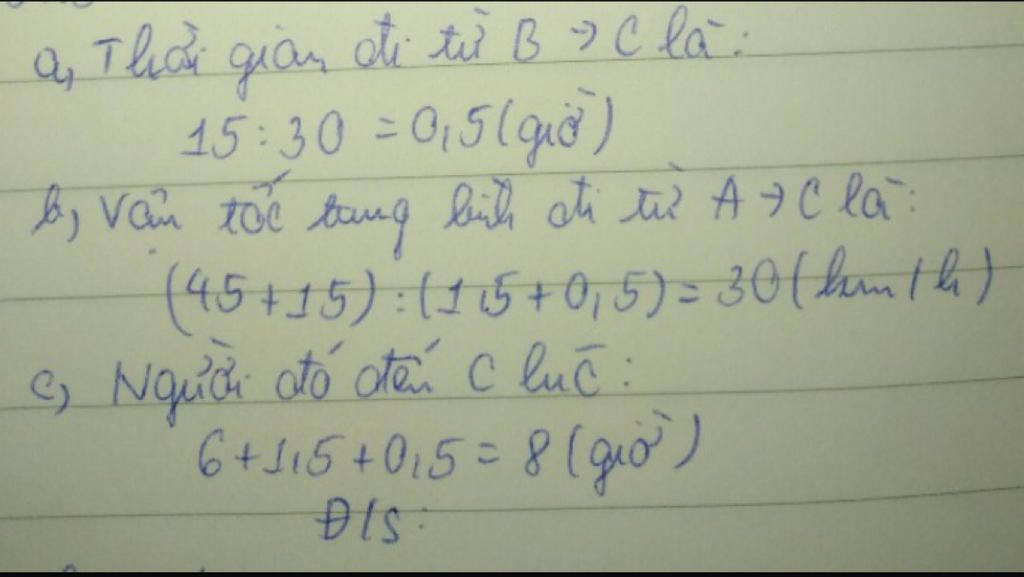 a, Thời gian đi từ B → C là:
15 : 30 = 0,5 (giờ)
b, Vận tốc trung bình đi từ A → C là:
(45 + 15) : (1,5 + 0,5) = 30 (km/h)
c, Người đó đến C lúc:
6 + 1,5 + 0,5 = 8 (giờ)
Đ/S: